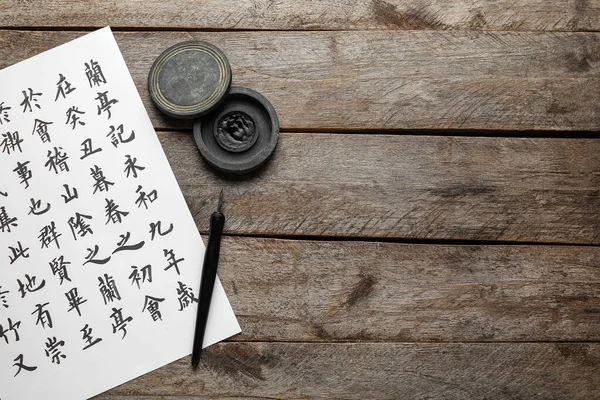 蘭亭記永和九年歲
在癸丑暮春之初會
於會稽山陰之蘭亭
修禊事也群賢畢至
集此地有崇
修竹又